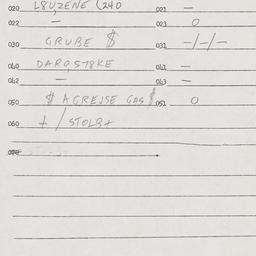 020 L8UZENE (240 021 —
022 — 023 0
030 GRUBE $ 031 -/-/-
040 DARO,ST8KE 041 —
042 — 043 —
050 $ AGREJSE GAS $ 051 0
060 + / STOLB+